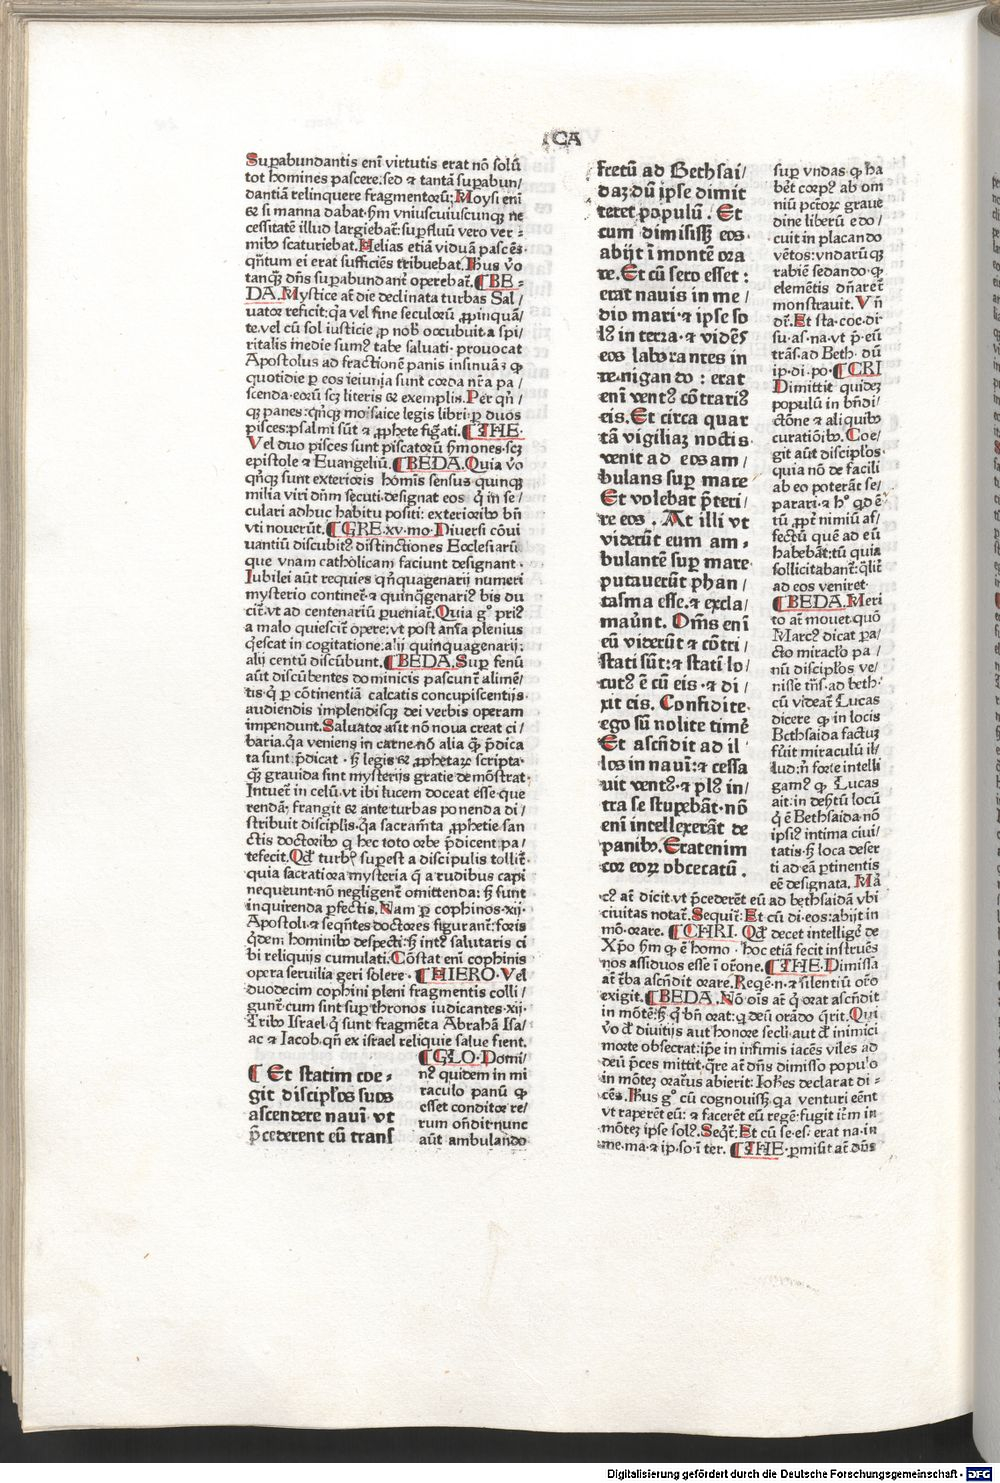 CA
Suꝑabundantis enī virtutis erat nō solū
tot homines pascere: sed ⁊ tantā suꝑabun/
dantiā relinquere fragmentoꝝ: Moysi enī
⁊ si manna dabat· hm̄ vniuscuiuscunqꝫ ne
cessitatē illud largiebat᷑: suꝑfluū vero ver-
mibꝰ scaturiebat. Helias etiā viduā pascēs·
qn̄tum ei erat sufficiēs tribuebat. Ihūs v̊o
tanqꝫ dn̄s suꝑabundant᷑ operebat᷑. ¶BE-
DA. Mystice at᷑ die declinata turbas Sal/
uator reficit: qꝛ vel fine seculoꝝ ꝓpinquā/
te. vel cū sol iusticie ꝓ nob̄ occubuit· a spi/
ritalis inedie sumꝰ tabe saluati· prouocat
Apostolus ad fractionē panis insinuās ꝙ
quotidie ꝑ eos ieiunia sunt corda nr̄a pa/
scenda· eoꝝ scꝫ literis ⁊ exemplis. Per qn̄/
qꝫ panes: qn̄qꝫ mosaice legis libri: ꝑ duos
pisces: psalmi sūt ⁊ ꝓphete fig᷑ati. ¶THE·
Vel duo pisces sunt piscatoꝝ s̄mones· scꝫ
epistole ⁊ Euangeliū. ¶BEDA. Quia v̊o
qn̄qꝫ sunt exterioris homīs sensus quinqꝫ
milia viri dn̄m secuti· designat eos q̄ in se/
culari adhuc habitu positi: exterioribꝰ bn̄
vti nouerūt. ¶GRE. xv. mo. Diuersi cōui
uantiū discubitꝰ distinctiones Ecclesiarū
que vnam catholicam faciunt designant·
Iubilei aūt requies qn̄quagenarij numeri
mysterio continet᷑· ⁊ quinq̄genariꝰ bis du
cit᷑· vt ad centenariū ꝑueniat᷑. Quia gͦ priꝰ
a malo quiescit᷑ opere: vt post aīa plenius
q̄escat in cogitatione· alij quinquagenarij:
alij centū discūbunt. ¶BEDA. Suꝑ fenū
aūt discūbentes dominicis pascunt᷑ alimē/
tis· q̄ ꝑ cōtinentiā calcatis concupiscentijs·
audiendis implendisqꝫ dei verbis operam
impendunt. Saluator aūt nō noua creat ci/
baria. qꝛ veniens in carne· nō alia qꝫ p̄dica
ta sunt p̄dicat· sꝫ legis ⁊ ꝓphetaꝝ scripta·
qꝫ grauida sint mysterijs gratie demōstrat·
Intuet᷑ in celū· vt ibi lucem doceat esse que
rendā: frangit ⁊ ante turbas ponenda di/
stribuit disciplis· qꝛ sacram̄ta ꝓphetie san
ctis doctoribꝰ q hec toto orbe p̄dicent pa/
tefecit. Qd̄ turbꝭ suꝑest a discipulis tollit᷑·
quia sacratiora mysteria q̄ a rudibus capi
nequeunt· nō negligent᷑ omittenda: sꝫ sunt
inquirenda ꝑfectis. Nam ꝑ cophinos· xij·
Apostoli· ⁊ seqn̄tes doctores figurant᷑: foris
q̄dem hominibꝰ despecti: sꝫ intꝰ salutaris ci
bi reliquijs cumulati. Cōstat enī cophinis
opera seruilia geri solere· ¶HIERO. Vel
duodecim cophini pleni fragmentis colli/
gunt᷑· cum sint suꝑ thronos iudicantes· xij·
Tribꝰ Israel· q̄ sunt fragmēta Abrahā Isa/
ac ⁊ Iacob. qn̄ ex israel reliquie salue fient.
¶ Et statim coe-
git disciplos suos
ascendere nauī· vt
p̄cederent eū trans
¶GLO· Domi/
nꝰ quidem in mi
raculo panū ꝙ
esset conditor re/
rum on̄dit· nunc
aūt ambulando
fretū ad Bethsai/
daꝫ: dū ipse dimit
teret populū. Et
cum dimisisꝫ eos·
abijt ī montē ora
re. Et cū sero esset:
erat nauis in me/
dio mari· ⁊ ipse so
lꝰ in terra· ⁊ vidēs
eos laborantes in
remigando: erat
enī ventꝰ cōtrariꝰ
eis. Et circa quar
tā vigiliaꝫ noctis·
venit ad eos am/
bulans suꝑ mare
Et volebat p̄teri/
re eos. At illi vt
viderūt eum am-
bulantē suꝑ mare·
putauerūt phan/
tasma esse. ⁊ excla/
maūnt. Om̄s enī
eū viderūt ⁊ cōtri/
stati sūt: ⁊ statī lo/
cutꝰ ē cū eis· ⁊ di/
xit eis. Confidite·
ego sū nolite timē
Et ascn̄dit ad il
los in nauī: ⁊ cessa
uit ventꝰ· ⁊ plꝰ in/
tra se stupebāt· nō
enī intellexerāt de
panibꝰ. Erat enim
cor eoꝝ obcecatū.
suꝑ vndas ꝙ ha
bet᷑ corpꝰ ab om
niū pctōꝝ graue
dine liberū edo/
cuit in placando
vētos: vndarūqꝫ
rabiē sedando· ꝙ
elementis dn̄aret᷑
monstrauit. Vn̄
dr̄. Et sta· coe· di·
su· as· na· vt p̄· eū
trās· ad Beth· dū
ip· di· po· ¶CRI
Dimittit quideꝫ
populū in bn̄di/
ctōne ⁊ aliquibꝰ
curatiōibꝰ. Coe/
git aūt disciplos·
quia nō de facili
ab eo poterāt se/
parari· ⁊ hͦ gͦ dē
tū ꝓpt᷑ nimiū af/
fectū quē ad eū
habebāt: tū quia
sollicitabant᷑: ql̄it᷑
ad eos veniret·
¶BEDA. Meri
to at᷑ mouet· quō
Marcꝰ dicat pa/
cto miraclo pa/
nū disciplos ve/
nisse tn̄s· ad beth·
cū videat᷑ Lucas
dicere ꝙ in locis
Bethsaida factuꝫ
fūit miraculū il/
lud: n̄ forte intelli
gamꝰ ꝙ Lucas
ait: in deh̄tū locū
q̄ ē Bethsaida· nō
ipsiꝰ intima ciui/
tatis· sꝫ loca deser
ti ad eā ꝑtinentis
eē designata. Ma᷑
cꝰ at᷑ dicit· vt p̄cederēt eū ad bethsaidā vbi
ciuitas notat᷑. Sequit᷑: Et cū di· eos: abijt in
mō· orare. ¶CHRI. Qd̄ decet intellige᷑ de
Xp̄o hm̄ ꝙ ē homo· hoc etiā fecit instruēs
nos assiduos esse ī or̄one. ¶THE· Dimissa
at᷑ t᷑ba ascn̄dit orare. Rege᷑· n· ⁊ silentiū or̄o
exigit. ¶BEDA. Nō ois at᷑ q̄ orat ascn̄dit
in mōte᷑: sꝫ q̄ bn̄ orat: q deū orādo q̄rit. Qui
v̊o ꝓ diuitijs aut honore secli aut ꝓ inimici
morte obsecrat: ip̄e in infimis iacēs viles ad
deū p̄ces mittit. q̄re at᷑ dn̄s dimisso populo
in mōteꝫ oratus abierit: Ioh̄es declarat di-
cēs. Ihūs gͦ cū cognouisꝫ· qꝛ venturi eēnt
vt raperēt eū: ⁊ facerēt eū regē· fugit it᷑m in
mōteꝫ ipse solꝰ. Seqt᷑: Et cū se· es· erat na· in
me· ma· ⁊ ip· so· ī ter. ¶THE· ꝑmisit at᷑ dn̄s
Digitalisierung gefördert durch die Deutsche Forschungsgemeinschaft - DFG